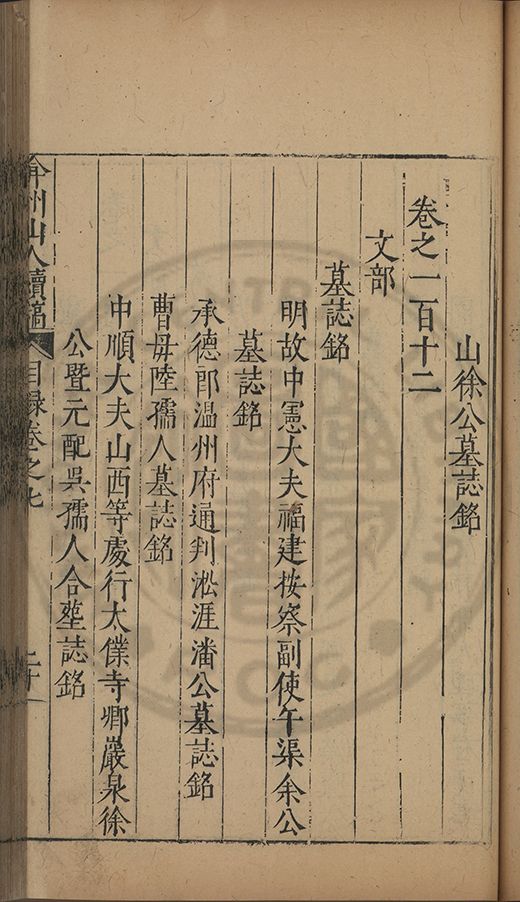 山徐公墓誌銘
卷之一百十二
文部
墓誌銘
明故中憲大夫福建按察副使午渠余公
墓誌銘
承德郎温州府通判淞涯潘公墓誌銘
曹毋陸孺人墓誌銘
中順大夫山西等處行太僕寺卿巖泉徐
公暨元配吳孺人合塟誌銘
弇州山人續稿 目録卷之九